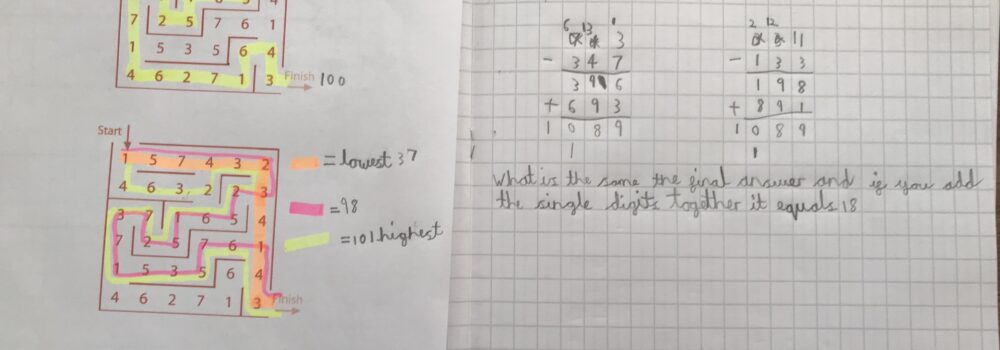 7 2 5 7 6 1
1 5 3 5 6 4
4 6 2 7 1 3 Finish 100
Start
1 5 7 4 3 2
4 6 3 2 2 3
3 7 1 6 5 4
7 2 5 7 6 1
1 5 3 5 6 4
4 6 2 7 1 3 Finish
= lowest 37
= 98
= 101 highest
6 13 1
3
- 3 4 7
3 9 6
+ 6 9 3
1 0 8 9
1
2 12
11
- 1 3 3
1 9 8
+ 8 9 1
1 0 8 9
1
What is the same the final answer and if you add
the single digits together it equals 18